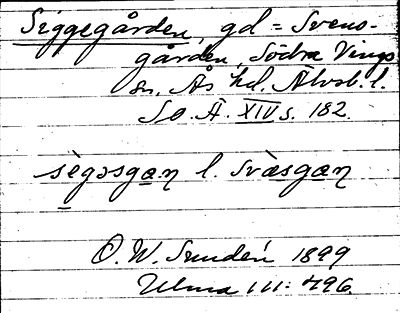 Siggegården, gd = Svens-
gården, Södra Vings
sn, Ås hd, Älvsb. l.
SOÄ. XIV s. 182.
sègəsgan l. svàsgan
O. W. Sundén 1899
Ulma 111: 496